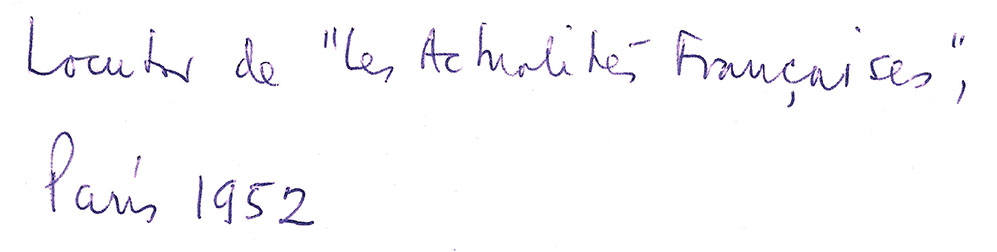 Locutor de "Les Actualités Françaises",
París 1952